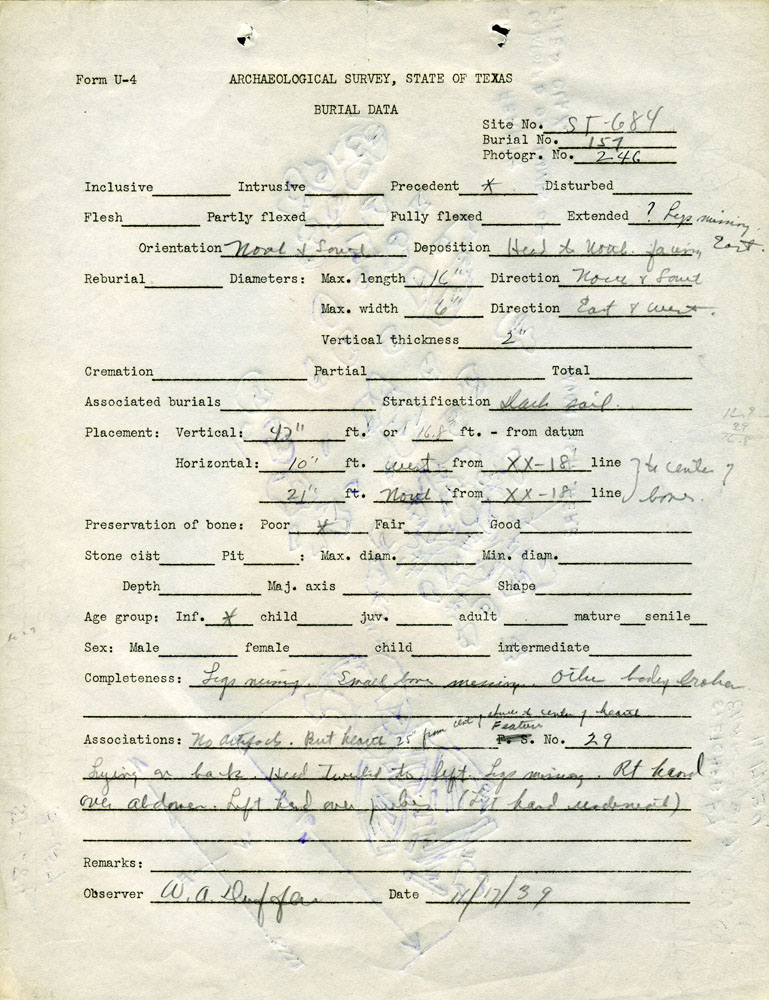 Form U-4 ARCHAEOLOGICAL SURVEY, STATE OF TEXAS
BURIAL DATA
Site No. ST-684
Burial No. 157
Photogr. No. 246
Inclusive Intrusive Precedent x Disturbed
Flesh Partly flexed Fully flexed Extended ? Legs missing.
Orientation North & South Deposition Head to North. facing East.
Reburial Diameters: Max. length 16" Direction North & South
Max. width 6" Direction East & West.
Vertical thickness 2"
Cremation Partial Total
Associated burials Stratification Dark soil.
Placement: Vertical: 47" ft. or 16.8 ft. - from datum
Horizontal: 10" ft. West from XX-18 line } to center of
21" ft. North from XX-18 line bones.
Preservation of bone: Poor x Fair Good
Stone cist Pit : Max. diam. Min. diam.
Depth Maj. axis Shape
Age group: Inf. x child juv. adult mature senile
Sex: Male female child intermediate
Completeness: Legs missing. Small bones missing. Other badly broken
center of hearth
Feature
Associations: No artifacts. But hearth 25 from F. S. No. 29
Lying on back. Head twisted to left. Legs missing. Rt hand
over abdomen. Left hand over (Left hand underneath)
Remarks:
Observer W. A. Duffen Date 11/17/39